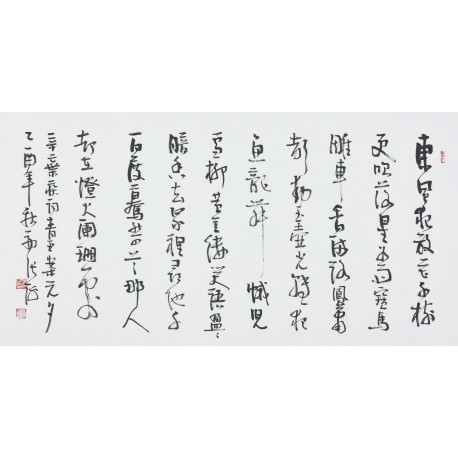 東風夜放花千樹
更吹落星如雨寶馬
雕車香滿路鳳簫
聲動玉壺光轉夜
魚龍舞蛾兒
雪柳黃金縷笑語盈盈
暗香去眾裡尋他千
百度驀然回首那人
却在燈火闌珊處
辛棄疾詞青玉案元夕
乙酉年秋